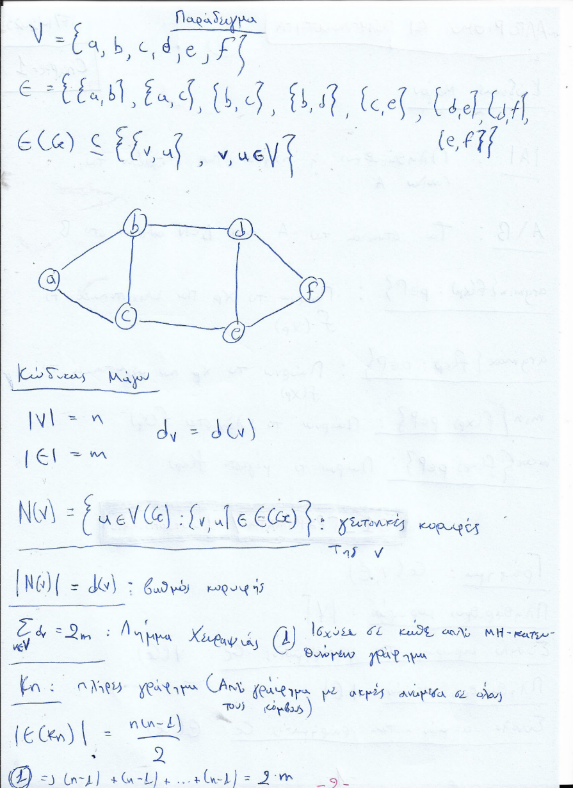 Παράδειγμα
V = {a, b, c, d, e, f}
E = {{a,b}, {a,c}, {b,c}, {b,d}, {c,e}, {d,e}{d,f},
{e,f}}
E(G) ⊆ {{v,u} , v,u ∈ V}
b
d
a
f
c
e
Κώδικας Μάγου
|V| = n
dv = d(v)
|E| = m
N(v) = {u ∈ V(G) : {v,u} ∈ E(G)} : γειτονικές κορυφές
της v
|N(v)| = d(v) : βαθμός κορυφής
Σ dv = 2m : Λήμμα Χειραψίας ① Ισχύει σε κάθε απλό μη-κατευ-
v∈V
θυνόμενο γράφημα
Kn : πλήρες γράφημα (Απλό γράφημα με ακμές ανάμεσα σε όλους
τους κόμβους)
|E(Kn)| = n(n-1)
2
① => (n-1) + (n-1) + ... + (n-1) = 2·m
-2-